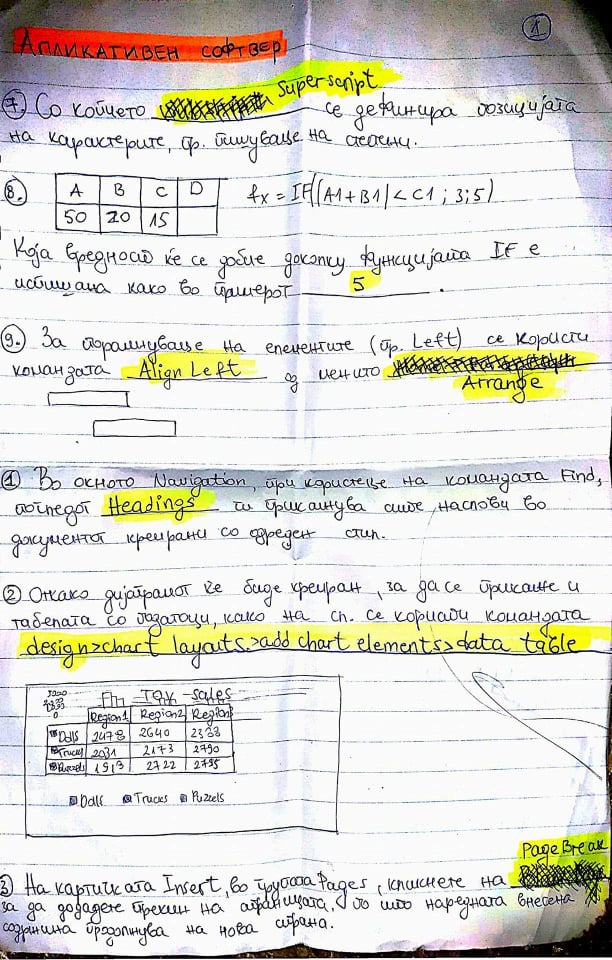 1
Апликативен софтвер
7. Со копчето Superscript се дефинира позицијата
на карактерите, пр. пишување на степени.
8.
A B C D
50 20 15
fx = IF((A1+B1)<C1;3;5)
Која вредност ќе се добие доколку функцијата IF е
испишана како во примерот 5.
9. За порамнување на елементите (пр. Left) се користи
командата Align Left од менито
Arrange
1 Во окното Navigation, при користење на командата Find,
погледот Headings ги прикажува сите наслови во
документот креирани со одреден стил.
2 Откако дијаграмот ќе биде креиран, за да се прикаже и
табелата со податоци, како на сл. се користи командата
design>chart layouts>add chart elements>data table
Toy Sales
Region1 Region2 Region3
Dolls 2478 2640 2338
Trucks 2031 2173 2790
Puzzels 1513 2722 2795
Dolls Trucks Puzzels
Page Break
3 На картичката Insert, во групата Pages, кликнете на
за да додадете прекин на страницата, по што наредната внесена
содржина продолжува на нова страна.